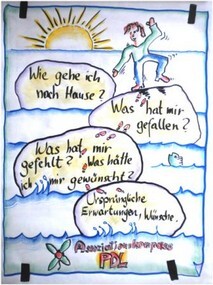 Wie gehe ich
nach Hause?
Was hat mir
gefallen?
Was hat mir
gefehlt? Was hätte
ich mir gewünscht?
Ursprüngliche
Erwartungen, Wünsche.
PDL